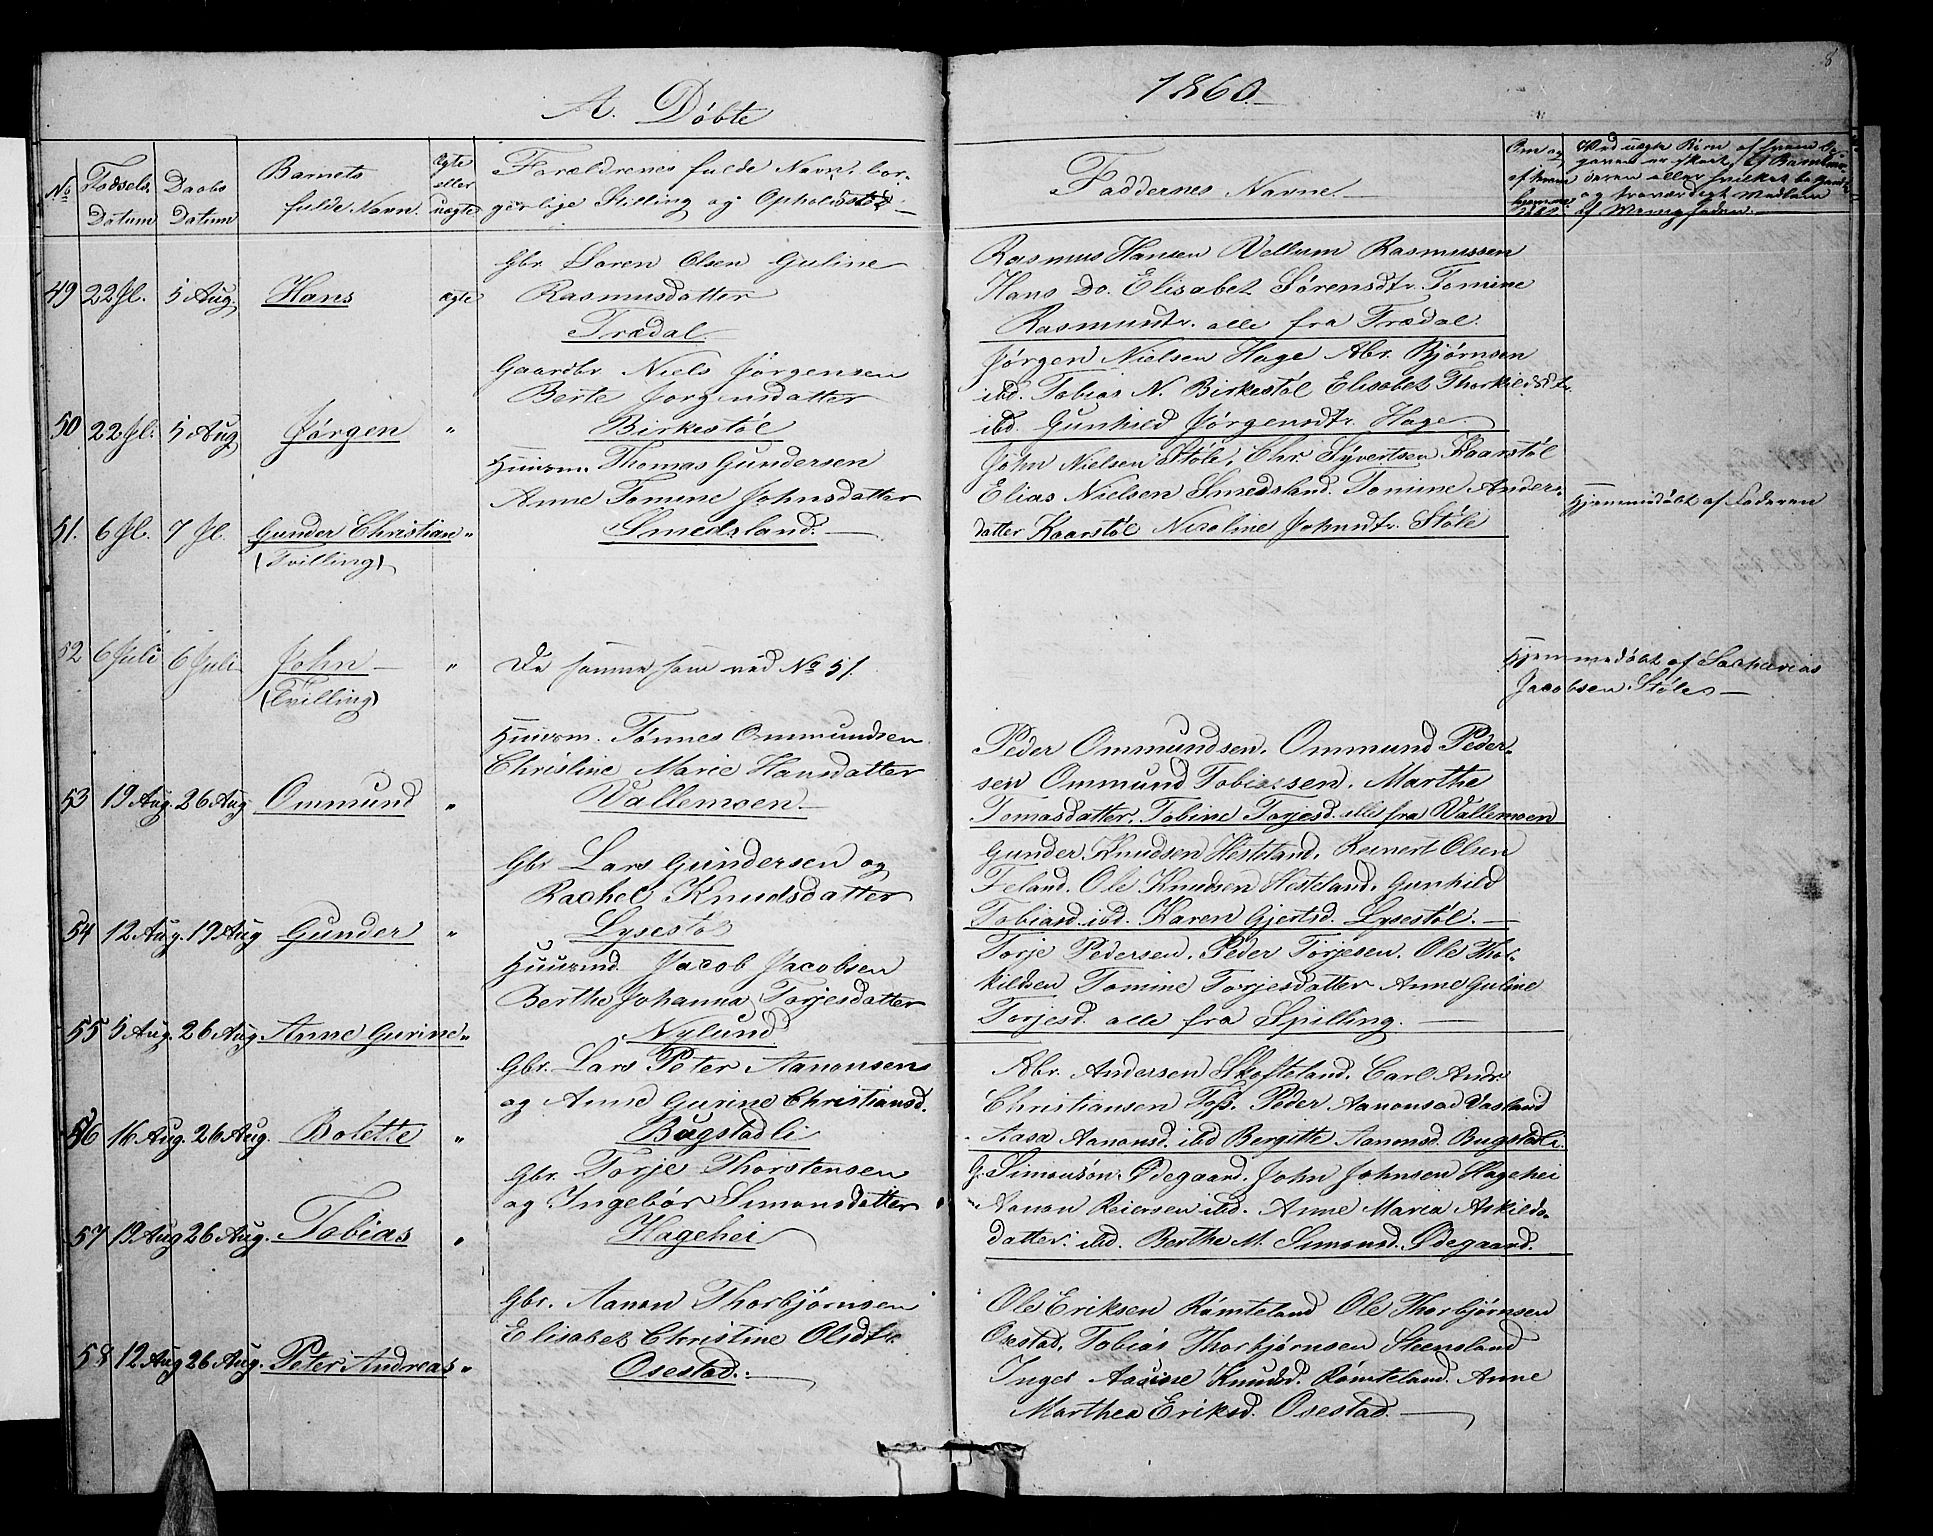 8
A. Døbte
1860.
No
Fødsels Datum
Daabs Datum
Barnets fulde Navn.
ægte eller uægte
Forældrenes fulde Navn, bor-
gerlige Stilling og Opholdsted
Faddernes Navne.
49 22 Jl. 5 Aug. Hans ægte
Gbr. Søren Olsen Guline
Rasmusdatter
Trædal.
Rasmus Hansen Vellum Rasmussen
Hans Do. Elisabet Sørensdtr. Tomine
Rasmusdtr. alle fra Trædal.
50. 22 Jl. 5 Aug Jørgen "
Gaardbr. Niels Jørgensen
Berte Jørgensdatter
Birkestøl
Jørgen Nielsen Hage Abr. Bjørnsen
ibd. Tobias N. Birkestøl Elisabet Thorkildsdtr.
ibd. Gunhild Jørgensdtr. Hage.
51. 6 Jl. 7 Jl. Gunder Christian "
(Tvilling)
Huusm. Thomas Gundersen
Anne Tomine Johnsdatter
Smedsland.
John Nielsen Støle, Chr. Syvertsen Kaarstøl
Elias Nielsen Smedsland. Tomine Anders-
datter Kaarstøl Nicoline Johnsdtr. Støle
Hjemmedøbt af Faderen
52 6 Juli 6 Juli John "
(Tvilling)
De samme som ved No 51.
Hjemmedøbt af Sacharias
Jacobsen Støle
53 19 Aug. 26 Aug Ommund "
Huusm. Tønnes Ommundsen
Christine Marie Hansdatter
Vallemoen.
Peder Ommundsen. Ommund Peder-
sen Ommund Tobiassen. Marthe
Tomasdatter, Tobine Torjesd. alle fra Vallemoen
54 12 Aug. 19 Aug Gunder "
Gbr. Lars Gundersen og
Rachel Knudsdatter
Lysestøl
Gunder Knudsen Hesteland. Reinert Olsen
Feland. Ole Knudsen Hesteland. Gunhild
Tobiasd. ibd. Karen Gjertsd. Lysestøl.
55 5 Aug. 26 Aug. Anne Gurine "
Huusmd. Jacob Jacobsen
Berthe Johanna Torjesdatter
Nylund
Torje Pedersen. Peder Torjesen. Ole Thor-
kildsen Tomine Torjesdatter Anne Guline
Torjesd. alle fra Spilling.
56 16 Aug. 26 Aug. Bolette "
Gbr. Lars Peter Aanonsen
og Anne Gurine Christiansd.
Bugstadli
Abr. Andersen Skofteland. Carl Andr.
Christiansen Foss. Peder Aanonsen Vasland
Aasa Aanonsd. ibd Bergitte Aanonsd. Bugstadli.
57 19 Aug 26 Aug. Tobias "
Gbr. Torje Thorstensen
og Ingebor Simonsdatter
Hagehei
G. Simonsøn Ødegaard. John Johnsen Hagehei
Aanon Reiersen ibd. Anne Maria Askilds-
datter. ibd. Berthe M. Simonsd. Ødegaard.
58 12 Aug 26 Aug. Peter Andreas "
Gbr. Aanon Thorbjørnsen
Elisabet Christine Olsdtr.
Osestad.
Ole Eriksen Rømteland Ole Thorbjørnsen
Osestad. Tobias Thorbjørnsen Steensland
Inger Aasine Knudsd. Rømteland. Anne
Marthea Eriksd. Osestad.